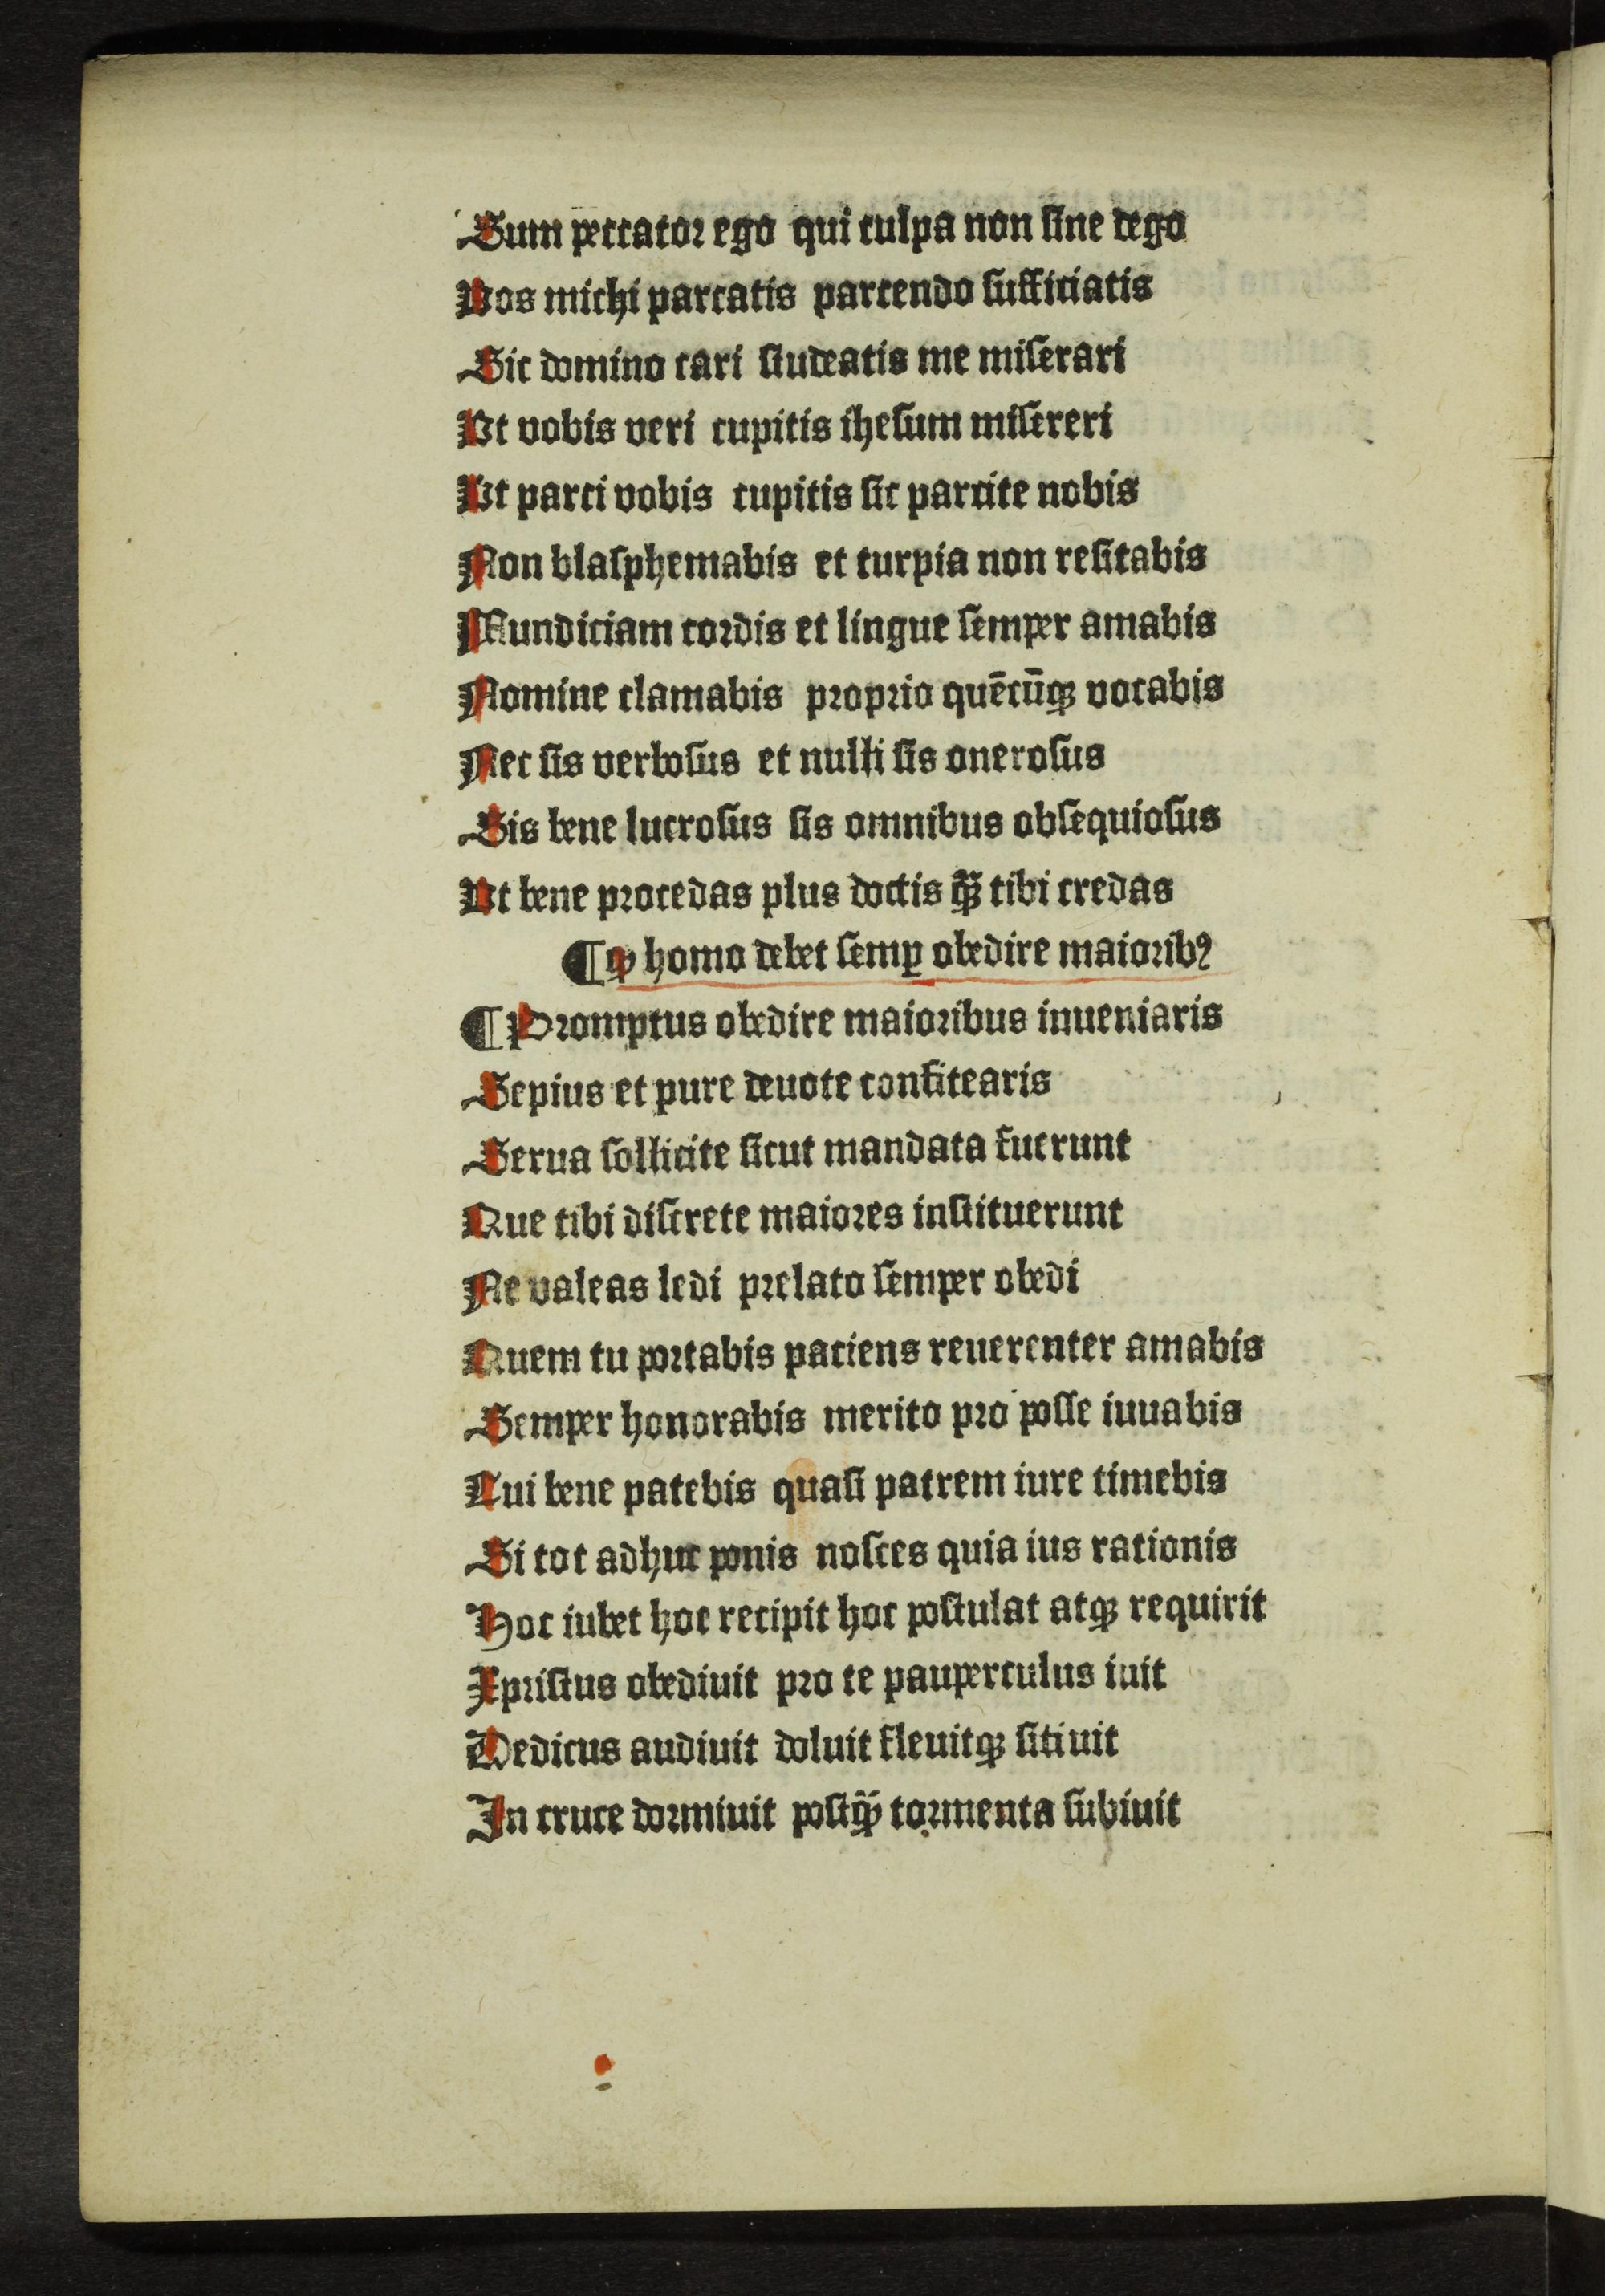 Sum peccator ego qui culpa non ſine dego
Vos michi parcatis parcendo ſufficiatis
Sic domino cari ſtudeatis me miſerari
Vt vobis veri cupitis iheſum miſereri
Vt parci vobis cupitis ſic parcite nobis
Non blaſphemabis et turpia non reſitabis
Mundiciam cordis et lingue ſemper amabis
Nomine clamabis proprio quēcūqꝫ vocabis
Nec ſis verboſus et nulli ſis oneroſus
Sis bene lucroſus ſis omnibus obſequioſus
Vt bene procedas plus doctis qꝫ̄ tibi credas
¶ Ꝙ homo debet ſemꝑ obedire maioribꝰ
¶ Promptus obedire maioribus inueniaris
Sepius et pure deuote confitearis
Serua ſollicite ſicut mandata fuerunt
Que tibi diſcrete maiores inſtituerunt
Ne valeas ledi prelato ſemper obedi
Quem tu portabis paciens reuerenter amabis
Semper honorabis merito pro poſſe iuuabis
Cui bene patebis quaſi patrem iure timebis
Si tot adhuc ponis noſces quia ius rationis
Hoc iubet hoc recipit hoc poſtulat atqꝫ requirit
Xpriſtus obediuit pro te pauperculus iuit
Medicus audiuit doluit fleuitqꝫ ſitiuit
In cruce dormiuit poſtꝙ̄ tormenta ſubiuit